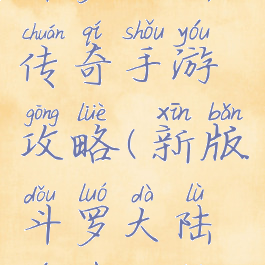 chuán qí shǒu yóu
传奇手游
gōng lüè xīn bǎn
攻略(新版
dǒu luó dà lù
斗罗大陆